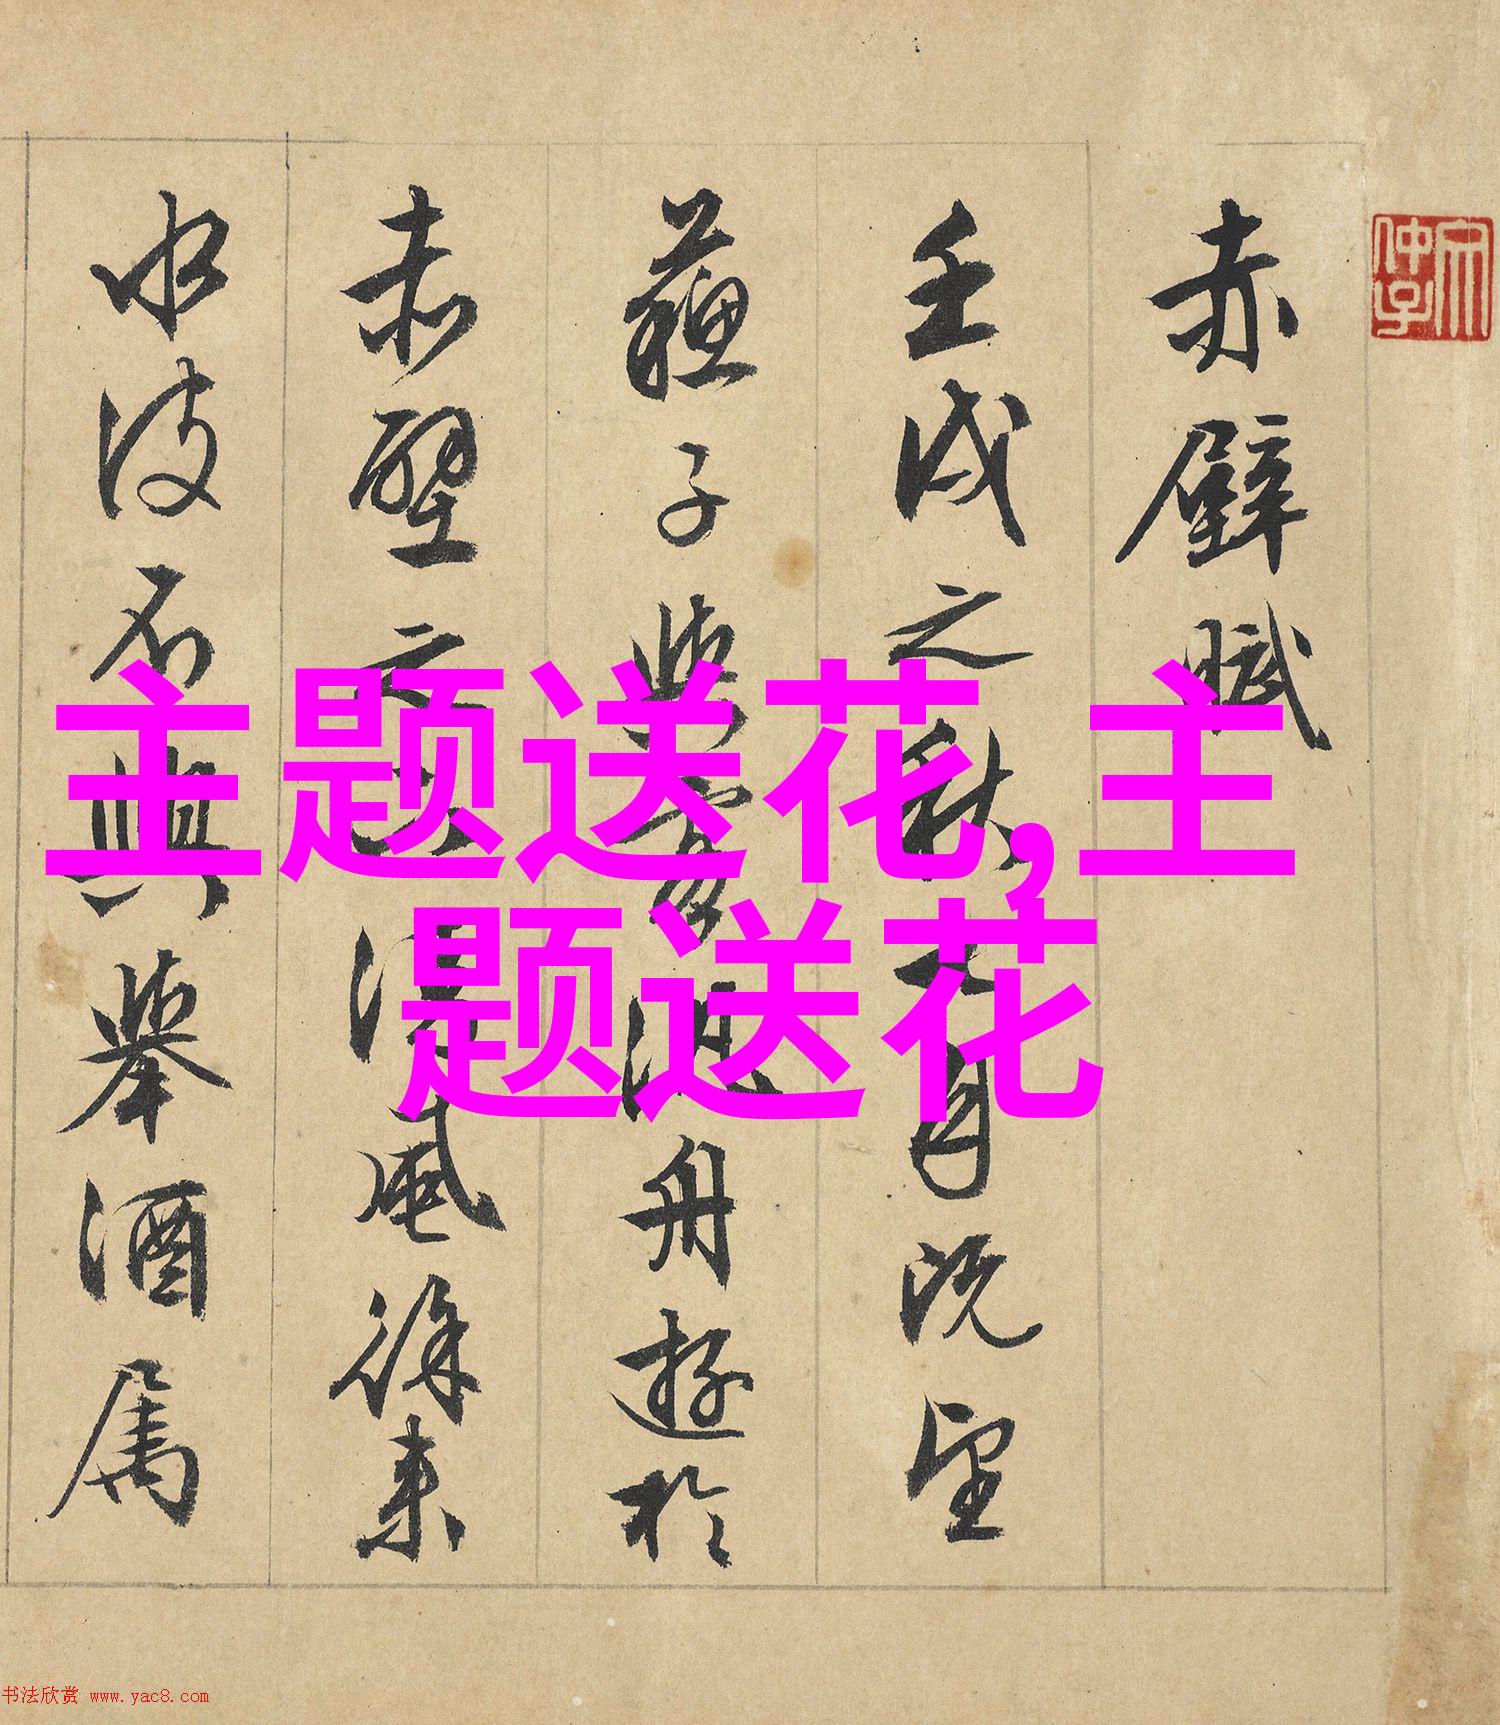 赤壁賦
壬戌之秋七月既望
蘇子與客泛舟遊於
赤壁之下清風徐來
水波不興舉酒屬
主题送花,主
题送花
书法欣赏 www.yac8.com